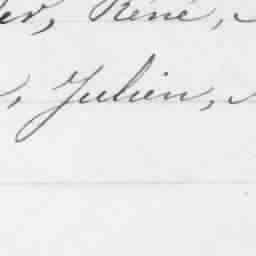 René,
, Julien,